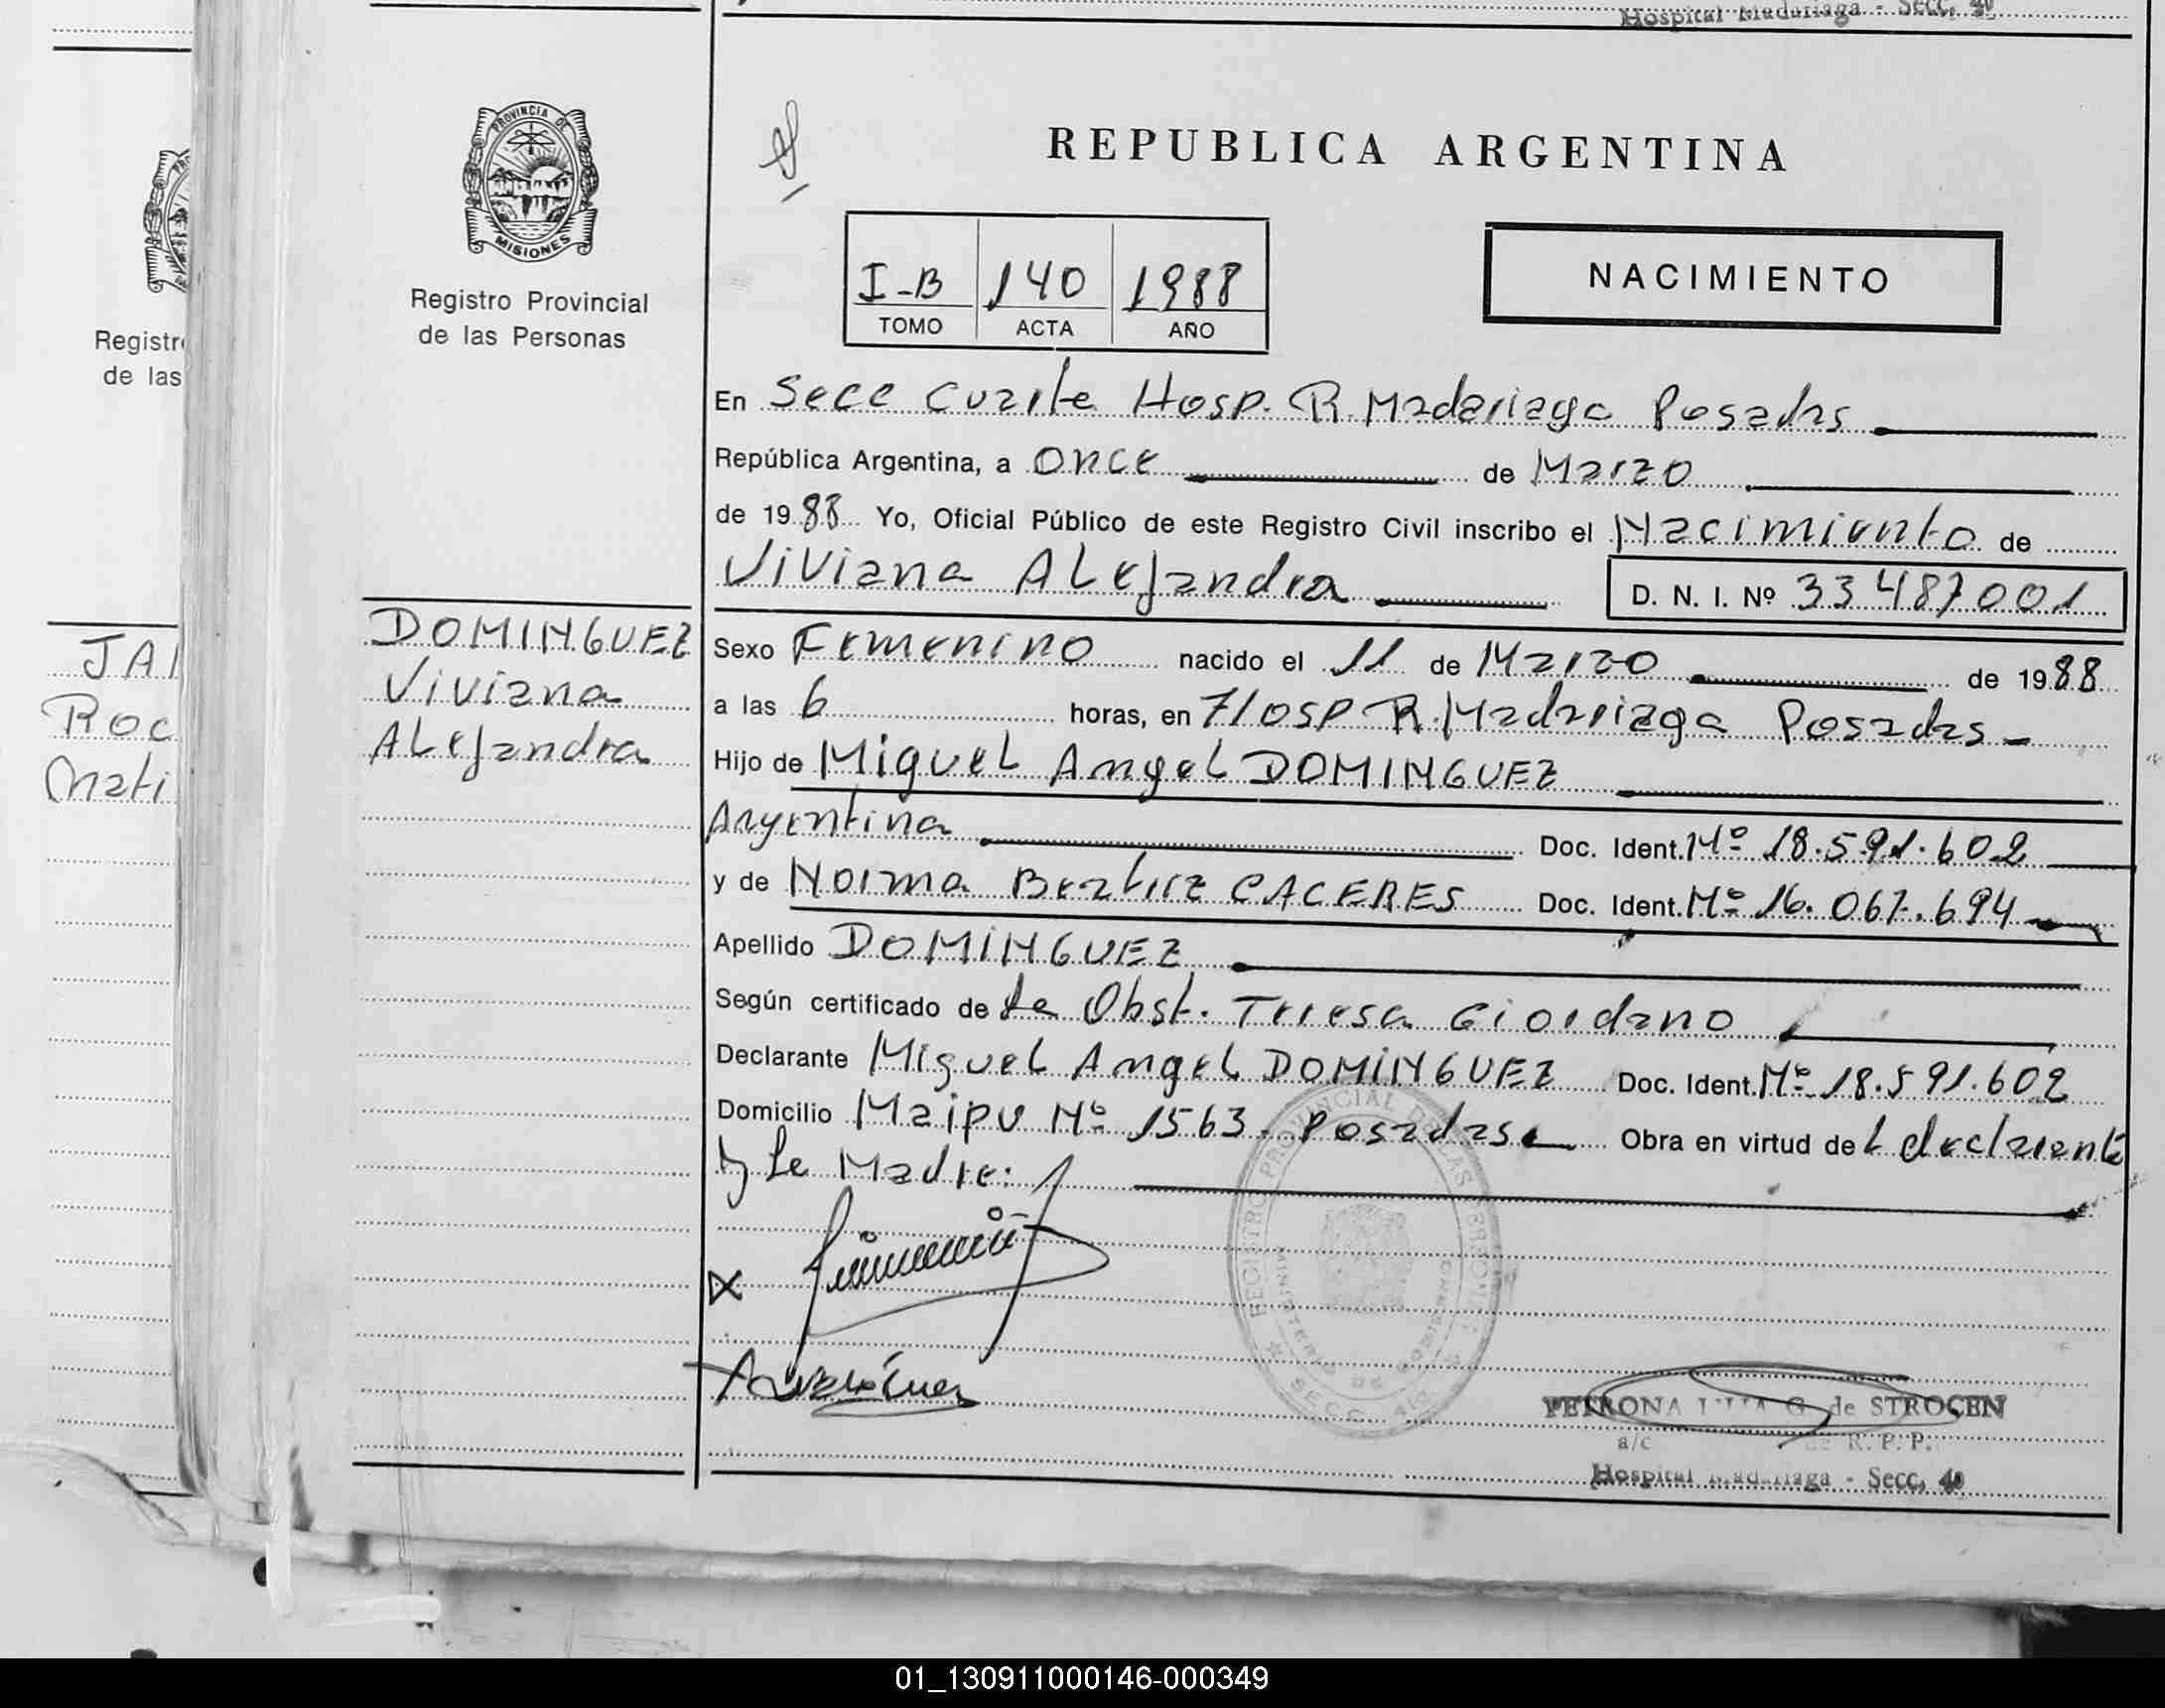 Hospital Madariaga - Secc. 40
PROVINCIA DE
MISIONES
Registro Provincial
de las Personas
Registr
de las
REPUBLICA ARGENTINA
I-B 140 1988
TOMO ACTA AÑO
NACIMIENTO
En Secc Cuarta Hosp. R. Madariaga Posadas
República Argentina, a Once de Marzo
de 1988 Yo, Oficial Público de este Registro Civil inscribo el Nacimiento de
Viviana Alejandra D. N. I. Nº 33487001
DOMINGUEZ
Viviana
Alejandra
JAI
Roc
Mati
Sexo Femenino nacido el 11 de Marzo de 1988
a las 6 horas, en Hosp R. Madariaga Posadas
Hijo de Miguel Angel DOMINGUEZ
Argentina Doc. Ident. Nº 18.591.602
y de Norma Beatriz CACERES Doc. Ident. Nº 16.067.694
Apellido DOMINGUEZ
Según certificado de la Obst. Teresa Giordano
Declarante Miguel Angel DOMINGUEZ Doc. Ident. Nº 18.591.602
Domicilio Maipu Nº 1563 - Posadas Obra en virtud del declarante
y la Madre:
REGISTRO PROVINCIAL DE LAS PERSONAS
MINISTERIO DE GOBIERNO
SECC. 40
PETRONA G. de STROCEN
a/c de R. P. P.
Hospital Madariaga - Secc. 40
01_130911000146-000349